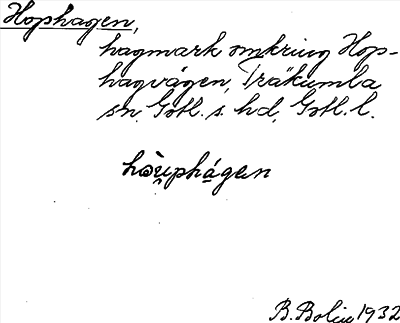 Hophagen,
hagmark omkring Hop-
hagvägen, Träkumla
sn, Gotl. s. hd, Gotl. l.
hòu̯phágen
B. Bolin 1932